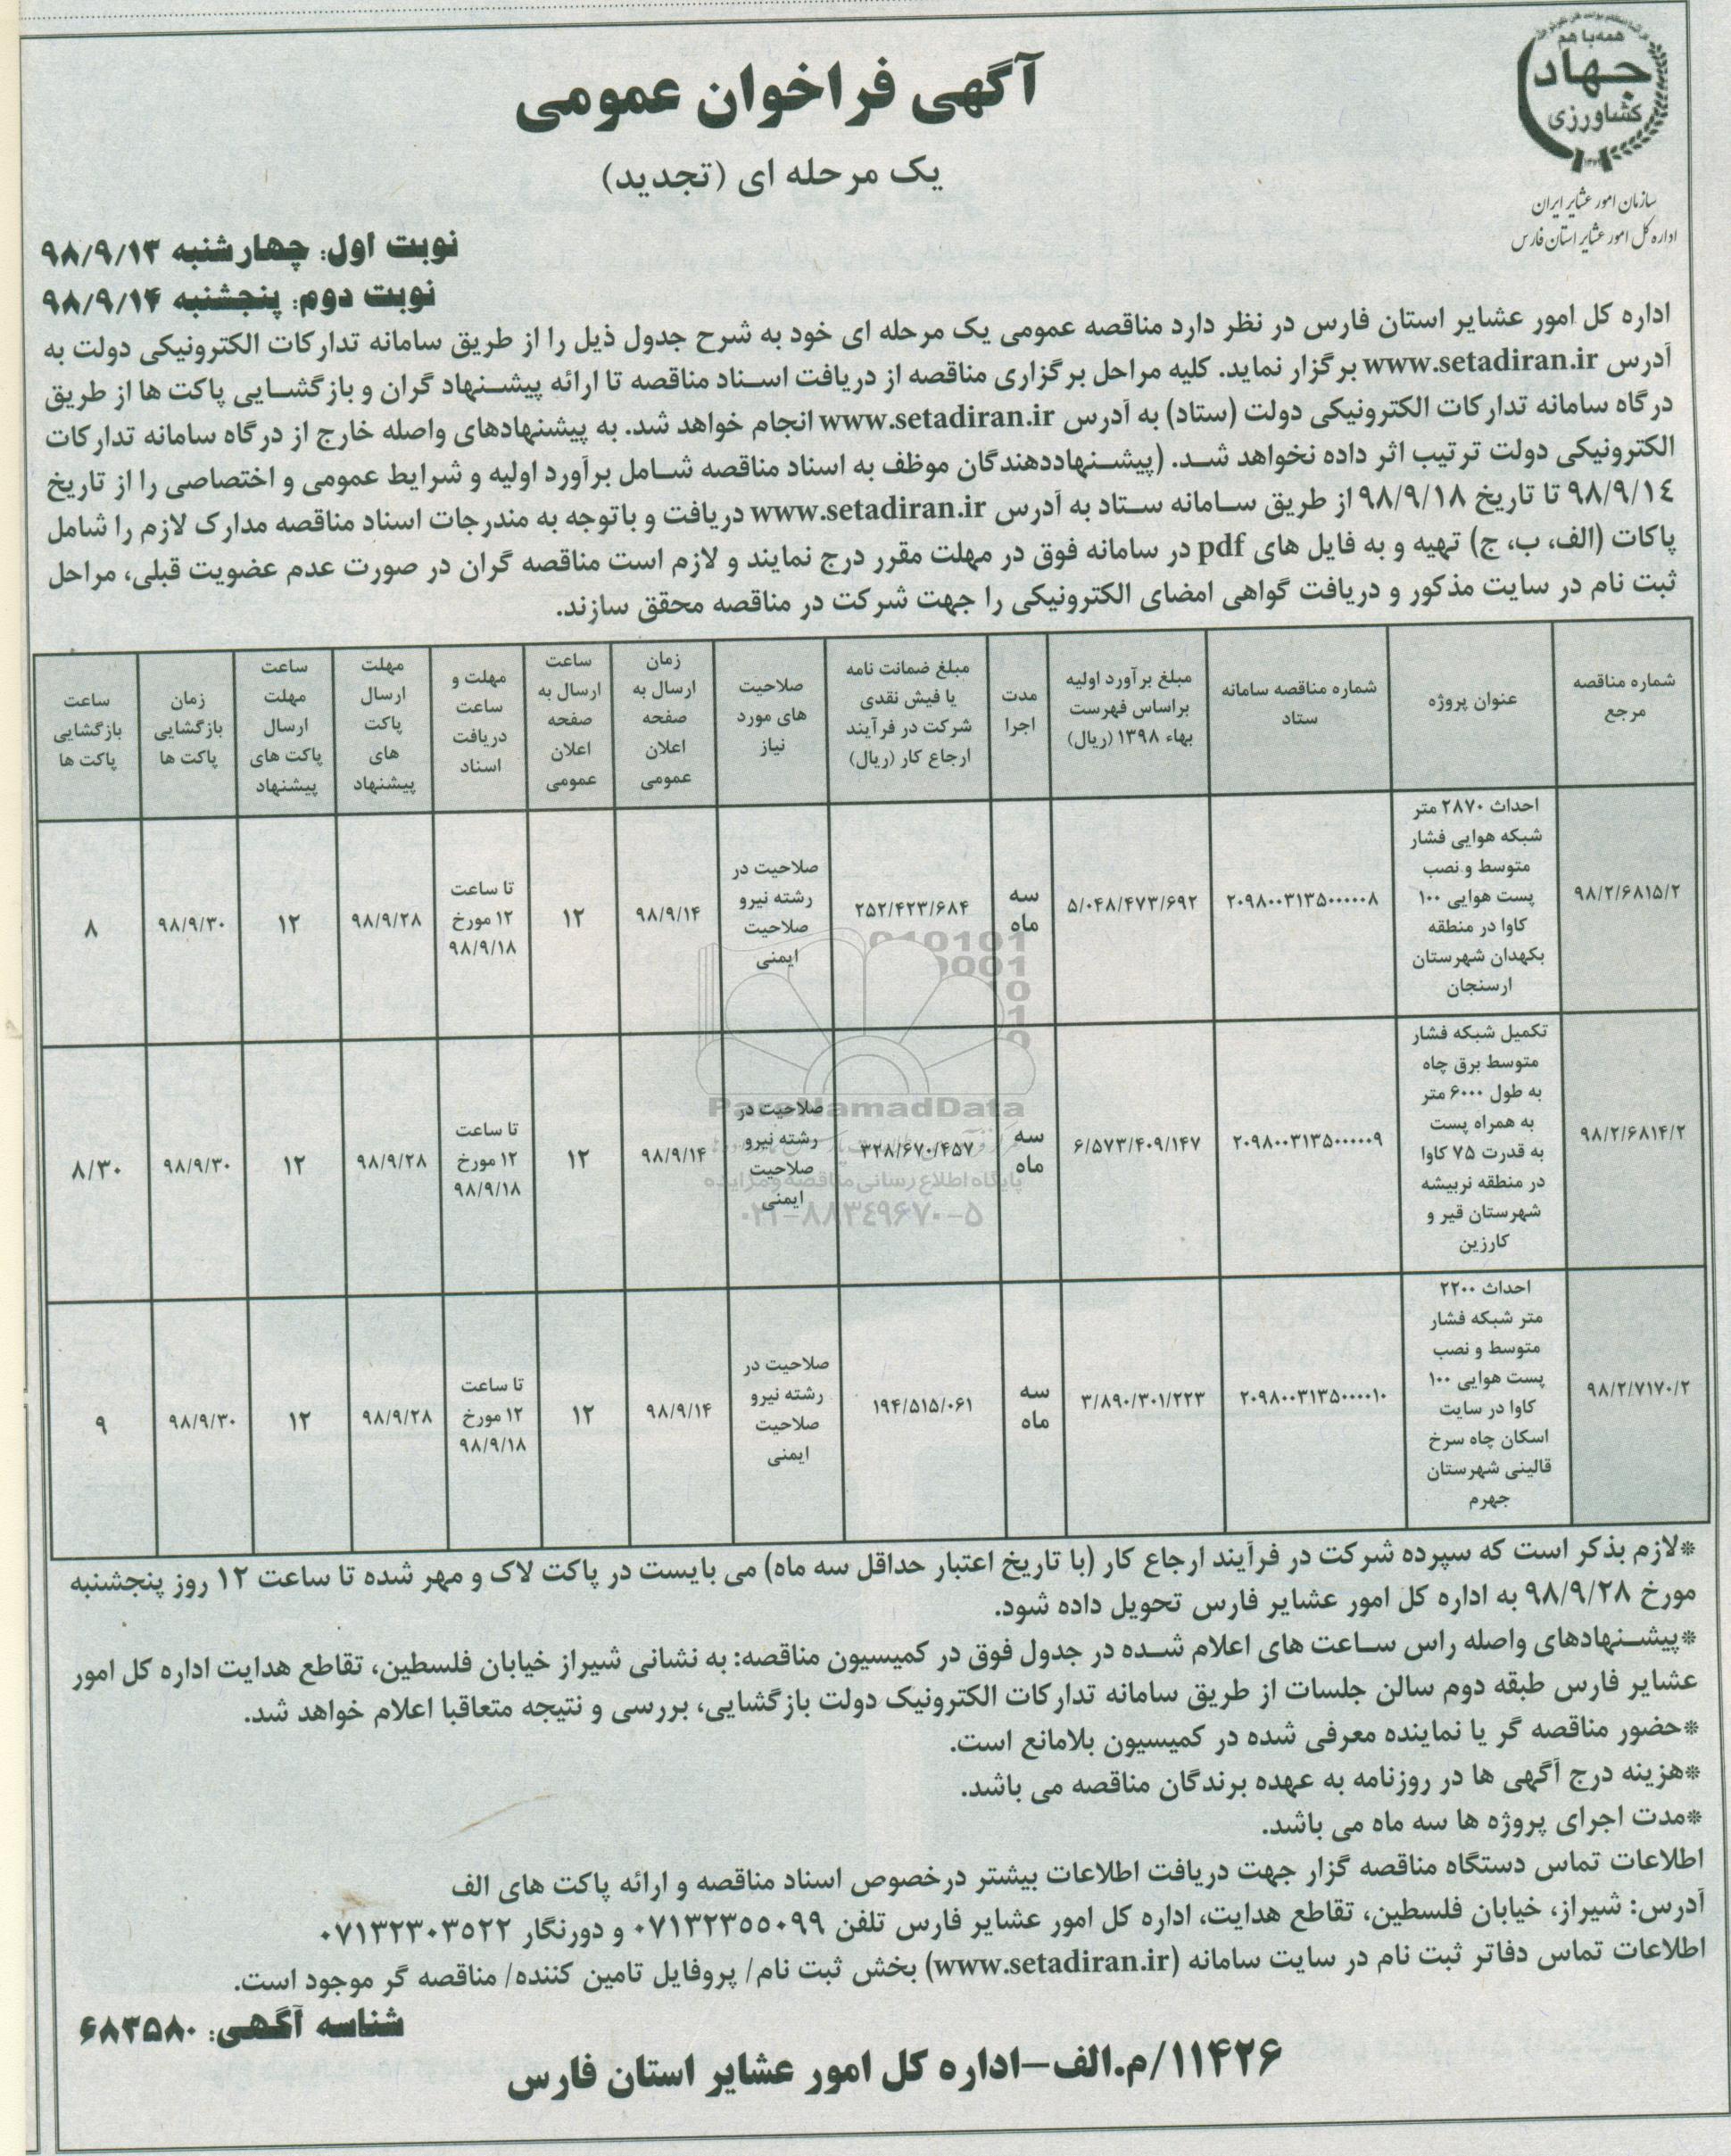 همه با هم
جهاد
کشاورزی
سازمان امور عشایر ایران
اداره کل امور عشایر استان فارس
آگهی فراخوان عمومی
یک مرحله ای (تجدید)
نوبت اول: چهارشنبه ۹۸/۹/۱۳
نوبت دوم: پنجشنبه ۹۸/۹/۱۴
اداره کل امور عشایر استان فارس در نظر دارد مناقصه عمومی یک مرحله ای خود به شرح جدول ذیل را از طریق سامانه تدارکات الکترونیکی دولت به
آدرس www.setadiran.ir برگزار نماید. کلیه مراحل برگزاری مناقصه از دریافت اسناد مناقصه تا ارائه پیشنهاد گران و بازگشایی پاکت ها از طریق
درگاه سامانه تدارکات الکترونیکی دولت (ستاد) به آدرس www.setadiran.ir انجام خواهد شد. به پیشنهادهای واصله خارج از درگاه سامانه تدارکات
الکترونیکی دولت ترتیب اثر داده نخواهد شد. (پیشنهاددهندگان موظف به اسناد مناقصه شامل برآورد اولیه و شرایط عمومی و اختصاصی را از تاریخ
۹۸/۹/۱٤ تا تاریخ ۹۸/۹/۱۸ از طریق سامانه ستاد به آدرس www.setadiran.ir دریافت و باتوجه به مندرجات اسناد مناقصه مدارک لازم را شامل
پاکات (الف، ب، ج) تهیه و به فایل های pdf در سامانه فوق در مهلت مقرر درج نمایند و لازم است مناقصه گران در صورت عدم عضویت قبلی، مراحل
ثبت نام در سایت مذکور و دریافت گواهی امضای الکترونیکی را جهت شرکت در مناقصه محقق سازند.
شماره مناقصه
مرجع
عنوان پروژه
شماره مناقصه سامانه
ستاد
مبلغ برآورد اولیه
براساس فهرست
بهاء ۱۳۹۸ (ریال)
مدت
اجرا
مبلغ ضمانت نامه
یا فیش نقدی
شرکت در فرآیند
ارجاع کار (ریال)
صلاحیت
های مورد
نیاز
زمان
ارسال به
صفحه
اعلان
عمومی
ساعت
ارسال به
صفحه
اعلان
عمومی
مهلت و
ساعت
دریافت
اسناد
مهلت
ارسال
پاکت
های
پیشنهاد
ساعت
مهلت
ارسال
پاکت های
پیشنهاد
زمان
بازگشایی
پاکت ها
ساعت
بازگشایی
پاکت ها
۹۸/۲/۶۸۱۵/۲
احداث ۲۸۷۰ متر
شبکه هوایی فشار
متوسط و نصب
پست هوایی ۱۰۰
کاوا در منطقه
بکهدان شهرستان
ارسنجان
۲۰۹۸۰۰۳۱۳۵۰۰۰۰۰۸
۵/۰۴۸/۴۷۳/۶۹۲
سه
ماه
۲۵۲/۴۲۳/۶۸۴
صلاحیت در
رشته نیرو
صلاحیت
ایمنی
۹۸/۹/۱۴
۱۲
تا ساعت
۱۲ مورخ
۹۸/۹/۱۸
۹۸/۹/۲۸
۱۲
۹۸/۹/۳۰
۸
۹۸/۲/۶۸۱۴/۲
تکمیل شبکه فشار
متوسط برق چاه
به طول ۶۰۰۰ متر
به همراه پست
به قدرت ۷۵ کاوا
در منطقه نربیشه
شهرستان قیر و
کارزین
۲۰۹۸۰۰۳۱۳۵۰۰۰۰۰۹
۶/۵۷۳/۴۰۹/۱۴۷
سه
ماه
۳۲۸/۶۷۰/۴۵۷
صلاحیت در
رشته نیرو
صلاحیت
ایمنی
۹۸/۹/۱۴
۱۲
تا ساعت
۱۲ مورخ
۹۸/۹/۱۸
۹۸/۹/۲۸
۱۲
۹۸/۹/۳۰
۸/۳۰
۹۸/۲/۷۱۷۰/۲
احداث ۲۲۰۰
متر شبکه فشار
متوسط و نصب
پست هوایی ۱۰۰
کاوا در سایت
اسکان چاه سرخ
قالینی شهرستان
جهرم
۲۰۹۸۰۰۳۱۳۵۰۰۰۰۱۰
۳/۸۹۰/۳۰۱/۲۲۳
سه
ماه
۱۹۴/۵۱۵/۰۶۱
صلاحیت در
رشته نیرو
صلاحیت
ایمنی
۹۸/۹/۱۴
۱۲
تا ساعت
۱۲ مورخ
۹۸/۹/۱۸
۹۸/۹/۲۸
۱۲
۹۸/۹/۳۰
۹
ParsNamadData
پایگاه اطلاع رسانی مناقصه و مزایده
۰۲۱-۸۸۳٤۹۶۷۰-۵
*لازم بذکر است که سپرده شرکت در فرآیند ارجاع کار (با تاریخ اعتبار حداقل سه ماه) می بایست در پاکت لاک و مهر شده تا ساعت ۱۲ روز پنجشنبه
مورخ ۹۸/۹/۲۸ به اداره کل امور عشایر فارس تحویل داده شود.
*پیشنهادهای واصله راس ساعت های اعلام شده در جدول فوق در کمیسیون مناقصه: به نشانی شیراز خیابان فلسطین، تقاطع هدایت اداره کل امور
عشایر فارس طبقه دوم سالن جلسات از طریق سامانه تدارکات الکترونیک دولت بازگشایی، بررسی و نتیجه متعاقبا اعلام خواهد شد.
*حضور مناقصه گر یا نماینده معرفی شده در کمیسیون بلامانع است.
*هزینه درج آگهی ها در روزنامه به عهده برندگان مناقصه می باشد.
*مدت اجرای پروژه ها سه ماه می باشد.
اطلاعات تماس دستگاه مناقصه گزار جهت دریافت اطلاعات بیشتر درخصوص اسناد مناقصه و ارائه پاکت های الف
آدرس: شیراز، خیابان فلسطین، تقاطع هدایت، اداره کل امور عشایر فارس تلفن ۰۷۱۳۲۳۵۵۰۹۹ و دورنگار ۰۷۱۳۲۳۰۳۵۲۲
اطلاعات تماس دفاتر ثبت نام در سایت سامانه (www.setadiran.ir) بخش ثبت نام/ پروفایل تامین کننده/ مناقصه گر موجود است.
شناسه آگهی: ۶۸۳۵۸۰
۱۱۴۲۶/م.الف-اداره کل امور عشایر استان فارس